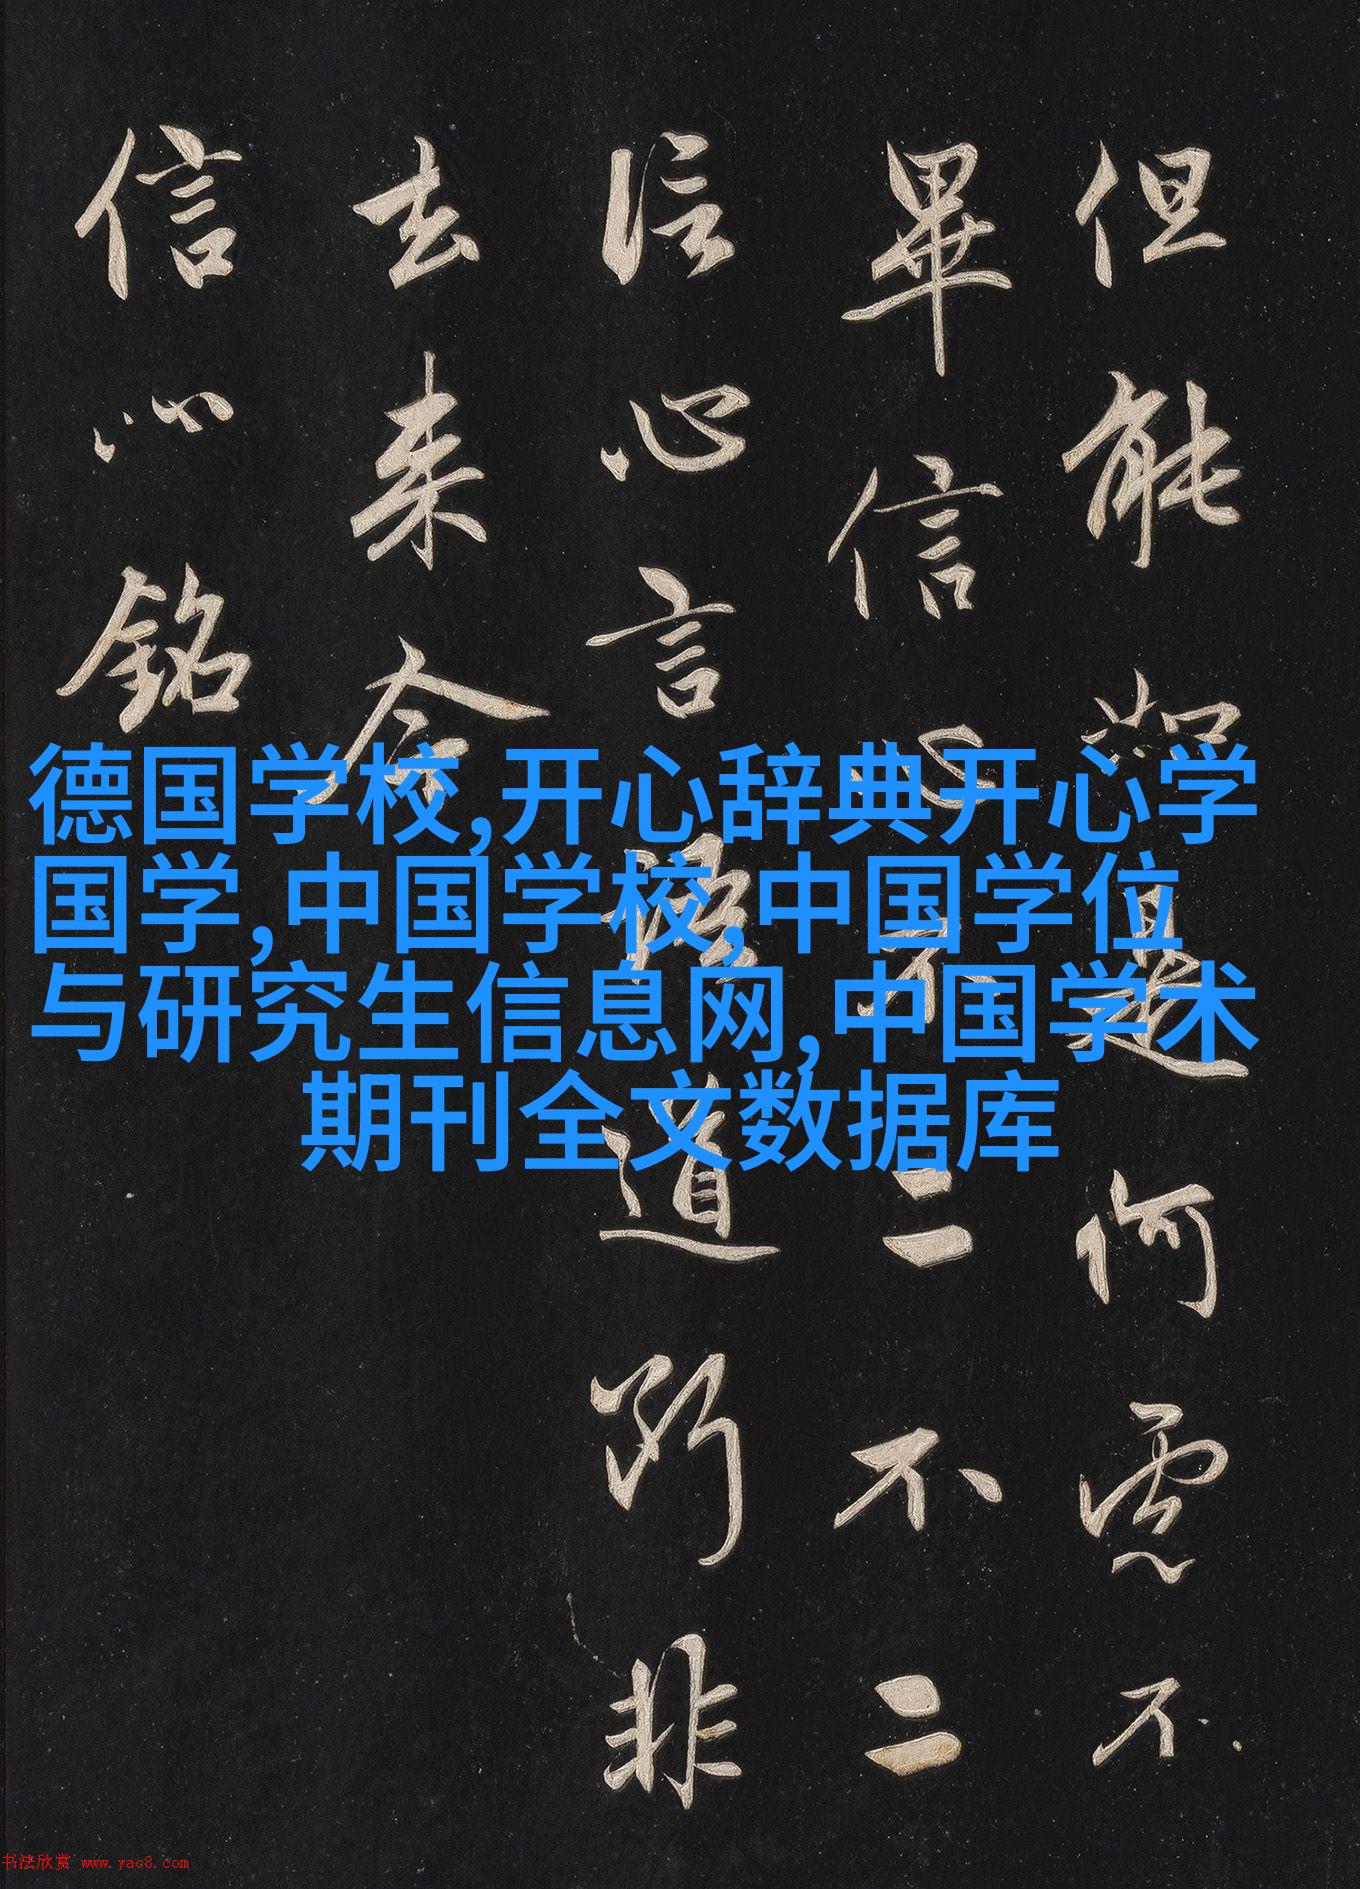 但能如是何慮不
畢信心不二不二
信心言語道断非
去来今
信心銘
德国学校,开心辞典开心学
国学,中国学校,中国学位
与研究生信息网,中国学术
期刊全文数据库
书法欣赏 www.yac8.com